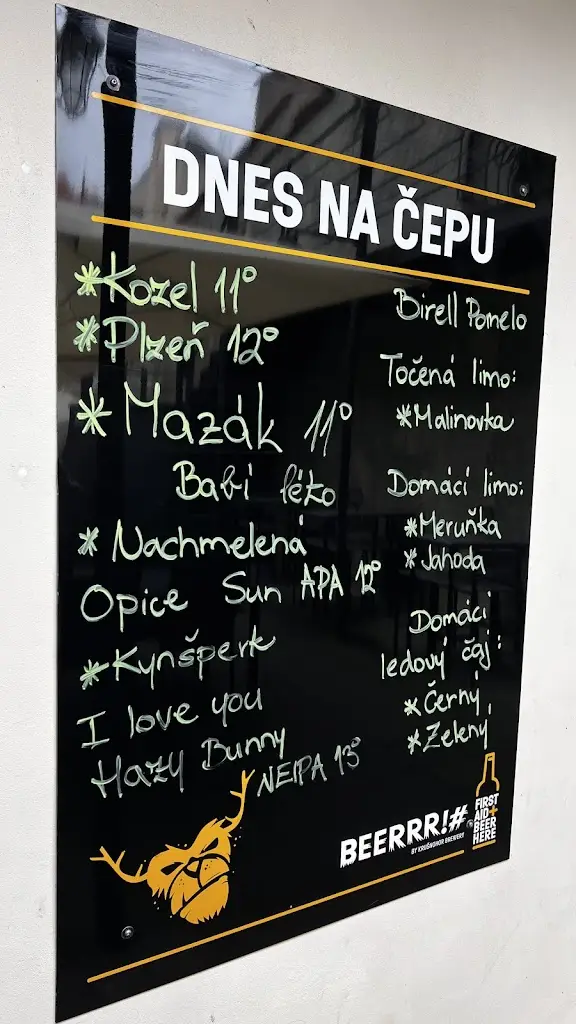 DNES NA ČEPU
*Kozel 11°
*Plzeň 12°
*Mazák 11°
Babí léto
*Nachmelená
Opice Sun APA 12°
*Kynšperk
I love you
Hazy Bunny
NEIPA 13°
Birell Pomelo
Točená limo:
*Malinovka
Domácí limo:
*Meruňka
*Jahoda
Domácí
ledový čaj:
*Černý
*Zelený
BEERRR!#
BY KRUŠNOHOR BREWERY
FIRST
AID+
BEER
HERE